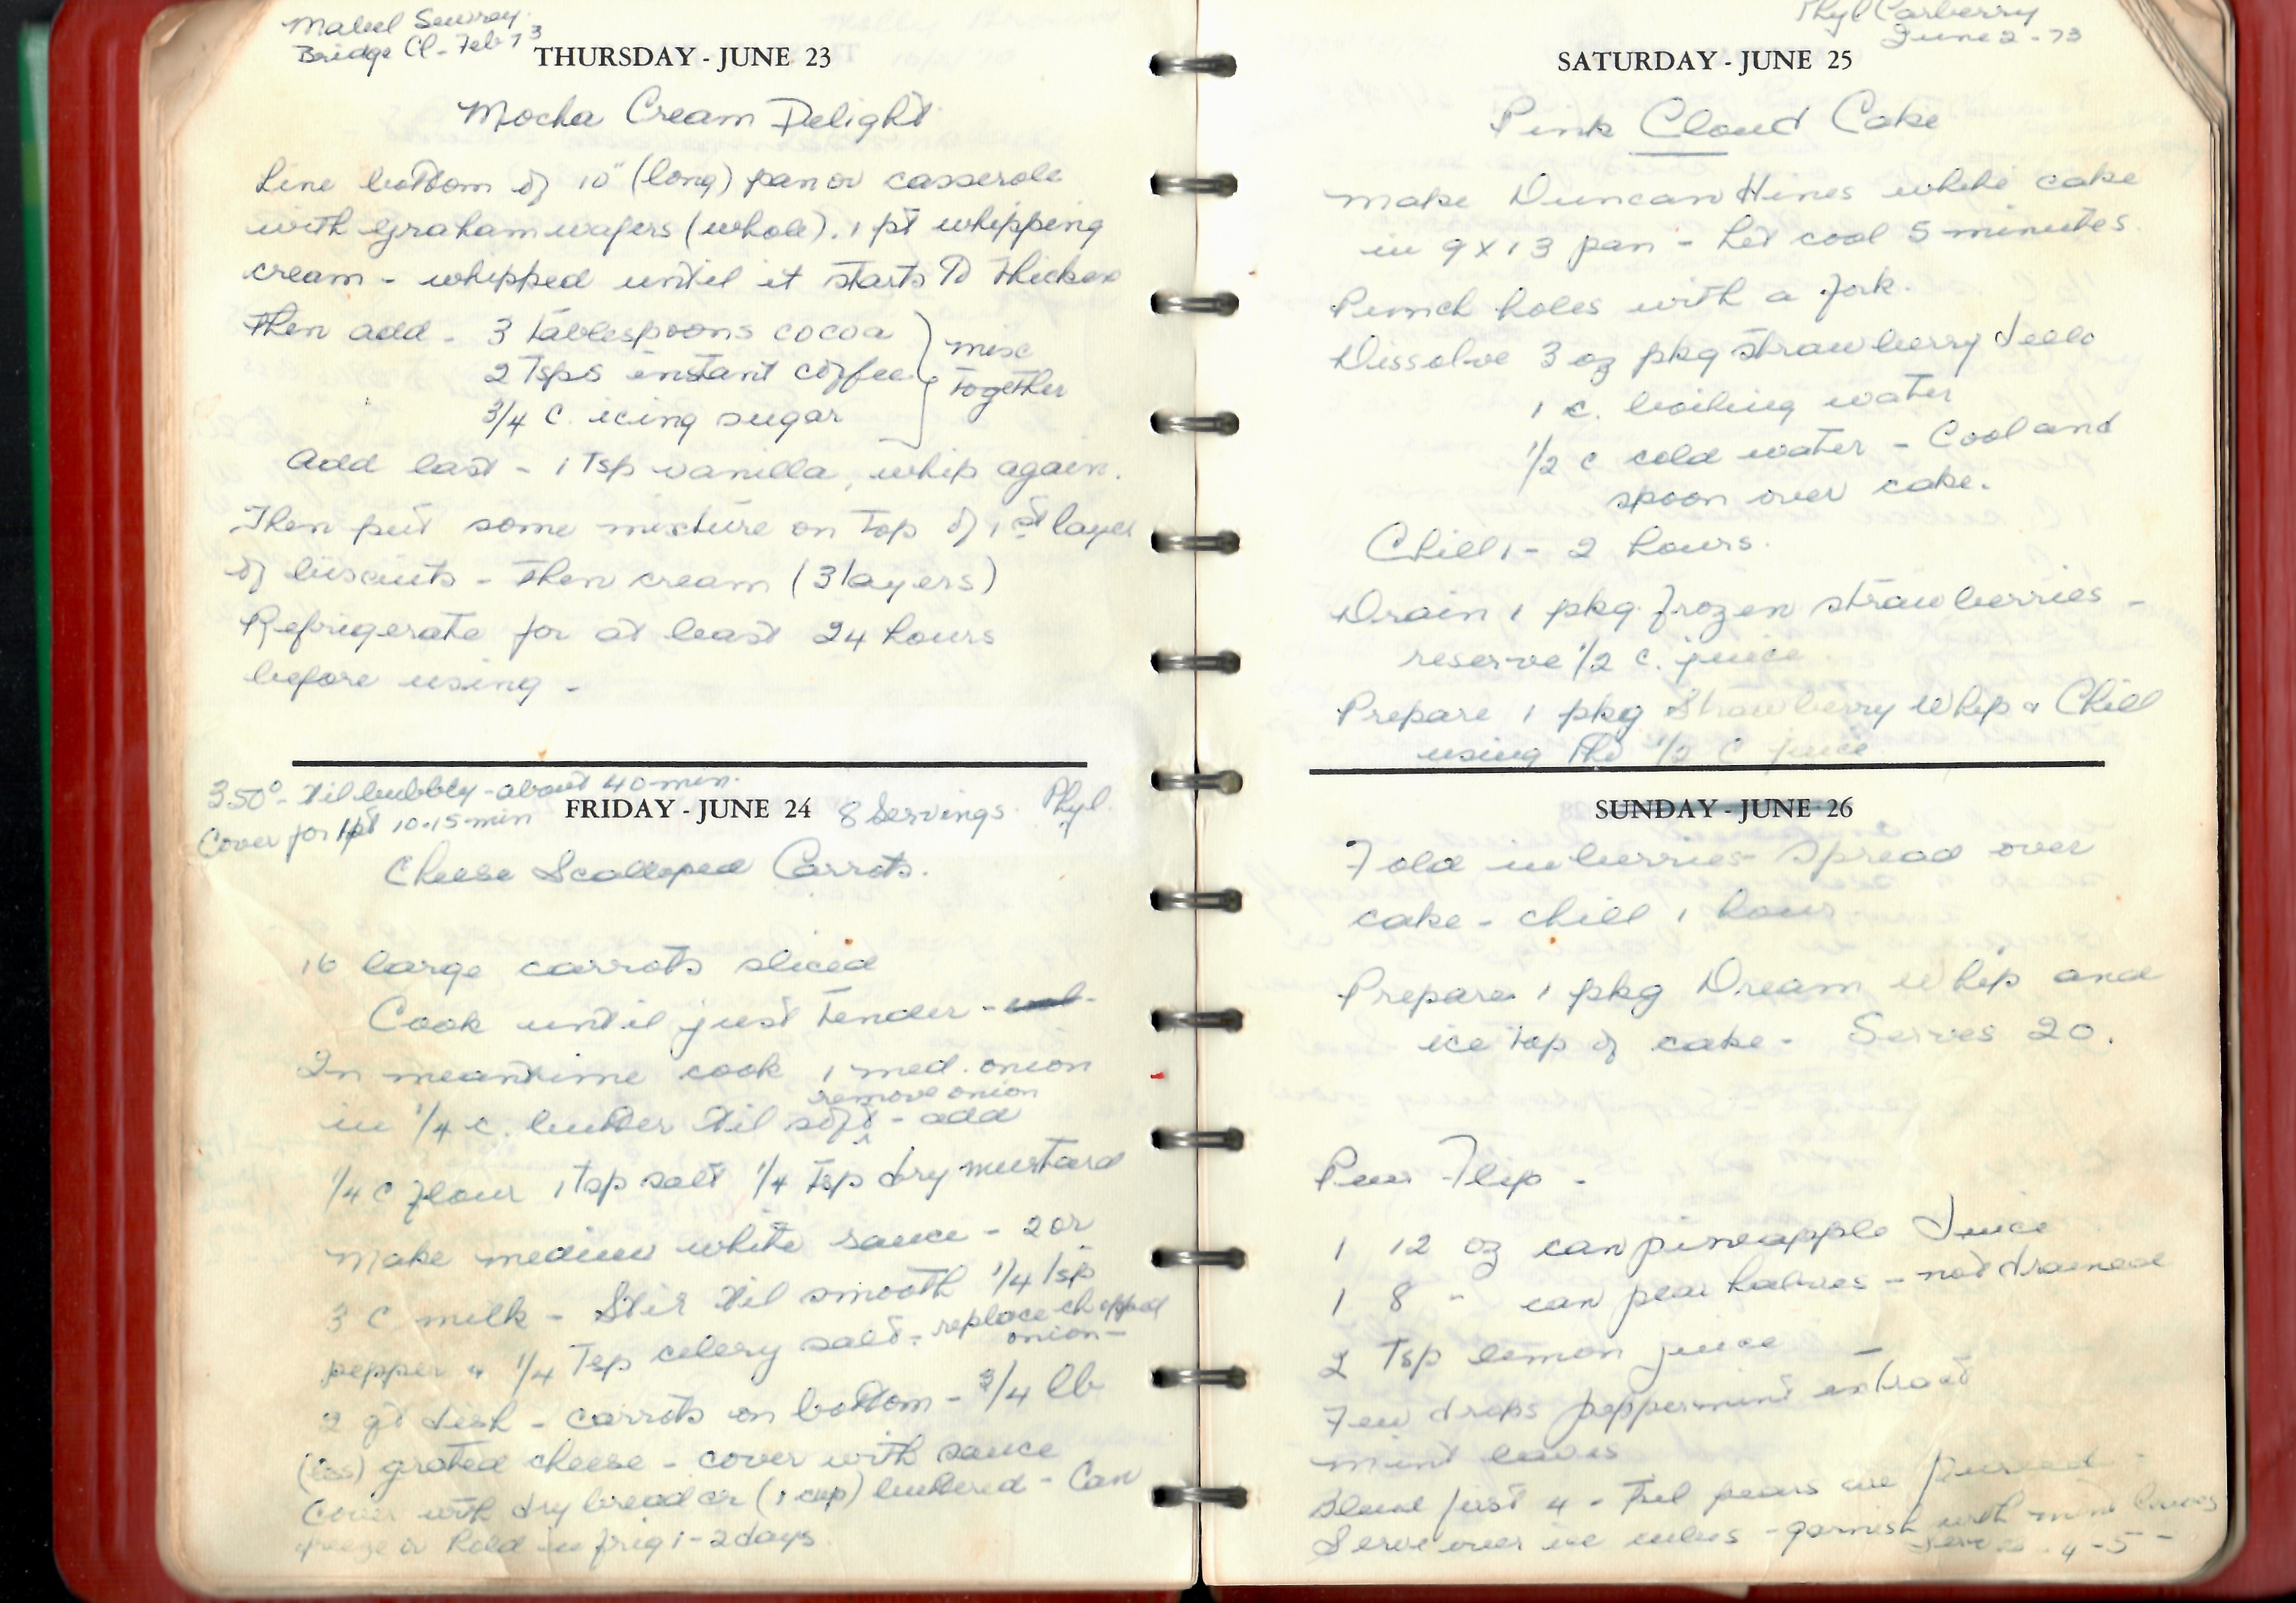 Mabel
Bridge Cl - Feb 73
THURSDAY - JUNE 23
Mocha Cream Delight
Line bottom of 10" (long) pan or casserole
with graham wafers (whole). 1 pt whipping
cream - whipped until it starts to thicken
Then add - 3 tablespoons cocoa
2 Tsps instant coffee
3/4 C. icing sugar
} mix
together
Add last - 1 Tsp vanilla, whip again.
Then put some mixture on top of 1st layer
of biscuits - then cream (3 layers)
Refrigerate for at least 24 hours
before using -
350° - til bubbly - about 40 min.
Cover for 1st 10-15 min
FRIDAY - JUNE 24
8 Servings. Phyl.
Cheese Scalloped Carrots.
16 large carrots sliced
Cook until just tender -
In meantime cook 1 med. onion
remove onion
in 1/4 c. butter til soft - add
1/4 c flour 1 tsp salt 1/4 tsp dry mustard
Make medium white sauce - 2 or
3 C milk - Stir til smooth 1/4 tsp
pepper & 1/4 Tsp celery salt - replace chopped
onion -
2 qt dish - carrots on bottom - 3/4 lb
(less) grated cheese - cover with sauce
Cover with dry bread cr (1 cup) buttered - Can
freeze or hold in frig 1-2 days
Phyl Carberry
June 2 - 73
SATURDAY - JUNE 25
Pink Cloud Cake
Make Duncan Hines white cake
in 9 x 13 pan - Let cool 5 minutes.
Punch holes with a fork.
Dissolve 3 oz pkg strawberry Jello
1 c. boiling water
1/2 c cold water - Cool and
spoon over cake.
Chill 1 - 2 hours.
Drain 1 pkg. frozen strawberries -
reserve 1/2 c. juice
Prepare 1 pkg Strawberry Whip & Chill
using the 1/2 C juice
SUNDAY - JUNE 26
Fold in berries - Spread over
cake - chill 1 hour
Prepare 1 pkg Dream Whip and
ice top of cake - Serves 20.
Pear Flip -
1 12 oz can pineapple Juice
1 8 " can pear halves - not drained
2 Tsp lemon juice
Few drops peppermint extract
mint leaves
Blend first 4 - Til pears are pureed -
Serve over ice cubes - garnish with mint leaves
Serves - 4-5 -